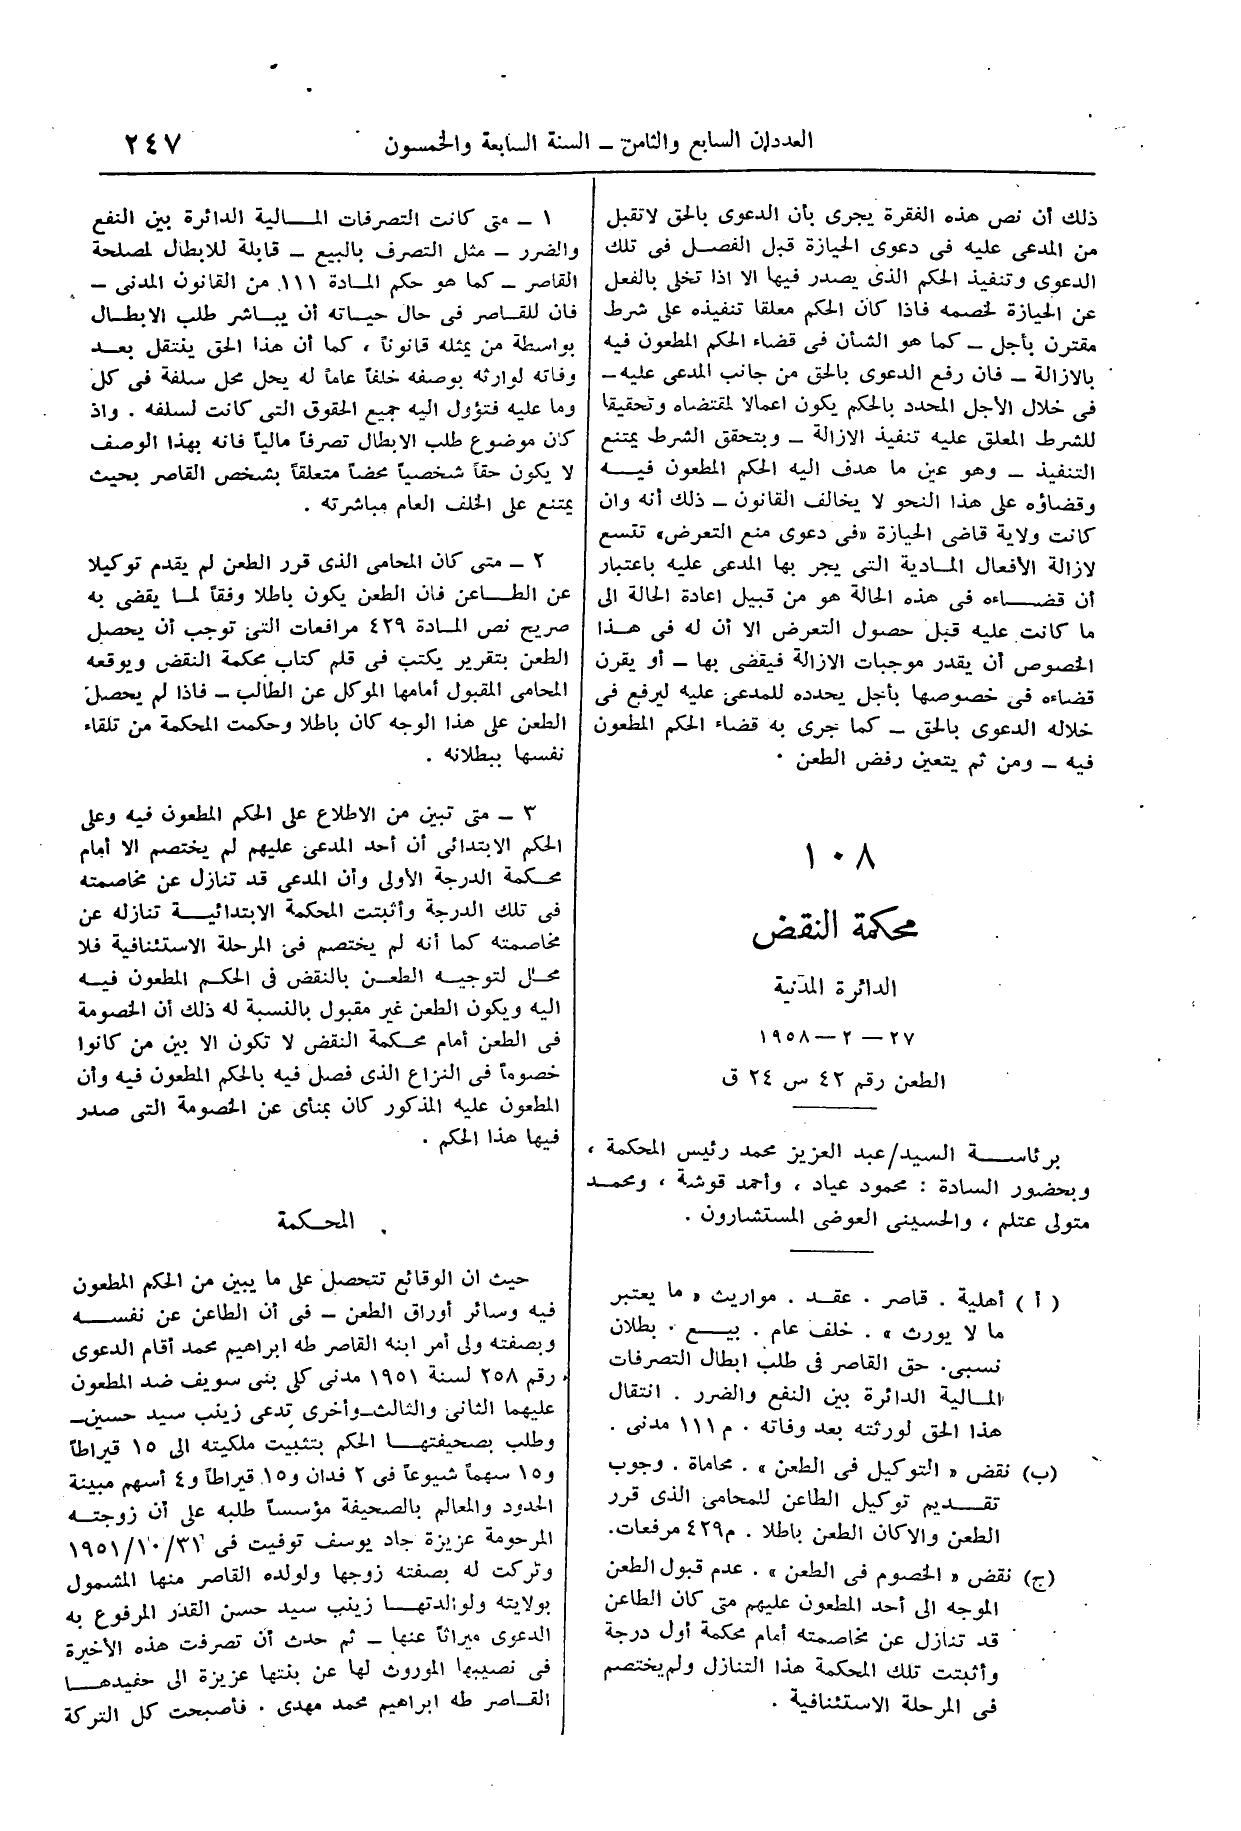 العددان السابع والثامن ـ السنة السابعة والخمسون
٢٤٧
ذلك أن نص هذه الفقرة يجرى بأن الدعوى بالحق لاتقبل
من المدعى عليه فى دعوى الحيازة قبل الفصل فى تلك
الدعوى وتنفيذ الحكم الذى يصدر فيها الا اذا تخلى بالفعل
عن الحيازة لخصمه فاذا كان الحكم معلقا تنفيذه على شرط
مقترن بأجل ـ كما هو الشأن فى قضاء الحكم المطعون فيه
بالازالة ـ فان رفع الدعوى بالحق من جانب المدعى عليه ـ
فى خلال الأجل المحدد بالحكم يكون اعمالا لمقتضاه وتحقيقا
للشرط المعلق عليه تنفيذ الازالة ـ وبتحقق الشرط يمتنع
التنفيذ ـ وهو عين ما هدف اليه الحكم المطعون فيه
وقضاؤه على هذا النحو لا يخالف القانون ـ ذلك أنه وان
كانت ولاية قاضى الحيازة «فى دعوى منع التعرض» تتسع
لازالة الأفعال المادية التى يجر بها المدعى عليه باعتبار
أن قضاءه فى هذه الحالة هو من قبيل اعادة الحالة الى
ما كانت عليه قبل حصول التعرض الا أن له فى هذا
الخصوص أن يقدر موجبات الازالة فيقضى بها ـ أو يقرن
قضاءه فى خصوصها بأجل يحدده للمدعى عليه ليرفع فى
خلاله الدعوى بالحق ـ كما جرى به قضاء الحكم المطعون
فيه ـ ومن ثم يتعين رفض الطعن .
١٠٨
محكمة النقض
الدائرة المدنية
٢٧ ـ ٢ ـ ١٩٥٨
الطعن رقم ٤٢ س ٢٤ ق
برئاسة السيد/عبد العزيز محمد رئيس المحكمة ،
وبحضور السادة : محمود عياد ، وأحمد قوشة ، ومحمد
متولى عتلم ، والحسينى العوضى المستشارون .
( أ ) أهلية . قاصر . عقد . مواريث « ما يعتبر
ما لا يورث » . خلف عام . بيع . بطلان
نسبى. حق القاصر فى طلب ابطال التصرفات
المالية الدائرة بين النفع والضرر . انتقال
هذا الحق لورثته بعد وفاته . م ١١١ مدنى .
(ب) نقض « التوكيل فى الطعن » . محاماة . وجوب
تقديم توكيل الطاعن للمحامى الذى قرر
الطعن والاكان الطعن باطلا . م٤٢٩ مرفعات.
(ج) نقض « الخصوم فى الطعن » . عدم قبول الطعن
الموجه الى أحد المطعون عليهم متى كان الطاعن
قد تنازل عن مخاصمته أمام محكمة أول درجة
وأثبتت تلك المحكمة هذا التنازل ولم يختصم
فى المرحلة الاستئنافية .
١ ـ متى كانت التصرفات المالية الدائرة بين النفع
والضرر ـ مثل التصرف بالبيع ـ قابلة للابطال لمصلحة
القاصر ـ كما هو حكم المادة ١١١ من القانون المدنى ـ
فان للقاصر فى حال حياته أن يباشر طلب الابطال
بواسطة من يمثله قانوناً ، كما أن هذا الحق ينتقل بعد
وفاته لوارثه بوصفه خلفاً عاماً له يحل محل سلفة فى كل
وما عليه فتؤول اليه جميع الحقوق التى كانت لسلفه . واذ
كان موضوع طلب الابطال تصرفاً مالياً فانه بهذا الوصف
لا يكون حقاً شخصياً محضاً متعلقاً بشخص القاصر بحيث
يمتنع على الخلف العام مباشرته .
٢ ـ متى كان المحامى الذى قرر الطعن لم يقدم توكيلا
عن الطاعن فان الطعن يكون باطلا وفقاً لما يقضى به
صريح نص المادة ٤٢٩ مرافعات التى توجب أن يحصل
الطعن بتقرير يكتب فى قلم كتاب محكمة النقض ويوقعه
المحامى المقبول أمامها الموكل عن الطالب ـ فاذا لم يحصل
الطعن على هذا الوجه كان باطلا وحكمت المحكمة من تلقاء
نفسها ببطلانه .
٣ ـ متى تبين من الاطلاع على الحكم المطعون فيه وعلى
الحكم الابتدائى أن أحد المدعى عليهم لم يختصم الا أمام
محكمة الدرجة الأولى وأن المدعى قد تنازل عن مخاصمته
فى تلك الدرجة وأثبتت المحكمة الابتدائية تنازله عن
مخاصمته كما أنه لم يختصم فى المرحلة الاستئنافية فلا
محال لتوجيه الطعن بالنقض فى الحكم المطعون فيه
اليه ويكون الطعن غير مقبول بالنسبة له ذلك أن الخصومة
فى الطعن أمام محكمة النقض لا تكون الا بين من كانوا
خصوماً فى النزاع الذى فصل فيه بالحكم المطعون فيه وأن
المطعون عليه المذكور كان بمنأى عن الخصومة التى صدر
فيها هذا الحكم .
المحكمة
حيث ان الوقائع تتحصل على ما يبين من الحكم المطعون
فيه وسائر أوراق الطعن ـ فى أن الطاعن عن نفسه
وبصفته ولى أمر ابنه القاصر طه ابراهيم محمد أقام الدعوى
رقم ٢٥٨ لسنة ١٩٥١ مدنى كلى بنى سويف ضد المطعون
عليهما الثانى والثالث وأخرى تدعى زينب سيد حسين ـ
وطلب بصحيفتها الحكم بتثبيت ملكيته الى ١٥ قيراطاً
و١٥ سهماً شيوعاً فى ٢ فدان و١٥ قيراطاً و٤ أسهم مبينة
الحدود والمعالم بالصحيفة مؤسساً طلبه على أن زوجته
المرحومة عزيزة جاد يوسف توفيت فى ١٩٥١/١٠/٣١
وتركت له بصفته زوجها ولولده القاصر منها المشمول
بولايته ولوالدتها زينب سيد حسن القدر المرفوع به
الدعوى ميراثاً عنها ـ ثم حدث أن تصرفت هذه الأخيرة
فى نصيبها الموروث لها عن بنتها عزيزة الى حفيدها
القاصر طه ابراهيم محمد مهدى . فأصبحت كل التركة